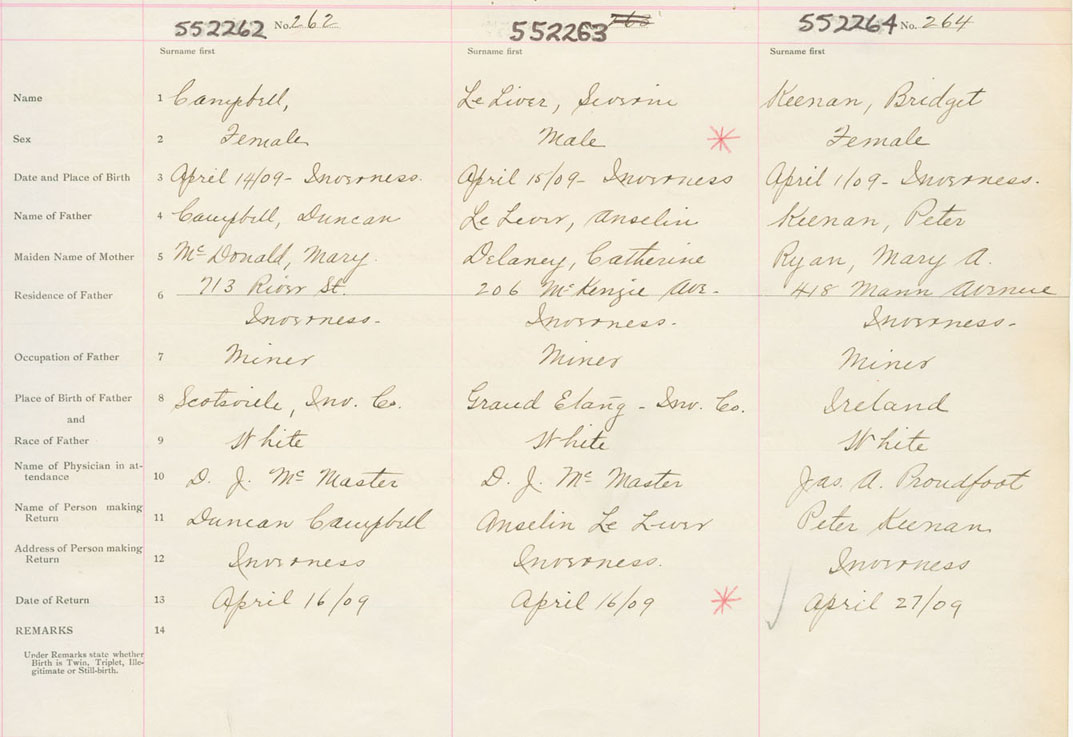 552262 No. 262 552263 552264 No. 264
Surname first Surname first Surname first
Name 1 Campbell, Le Liver, Severin Keenan, Bridget
Sex 2 Female Male Female
Date and Place of Birth 3 April 14/09 - Inverness. April 15/09 - Inverness April 1/09 - Inverness.
Name of Father 4 Campbell, Duncan Le Lever, Anselin Keenan, Peter
Maiden Name of Mother 5 Mc Donald, Mary. Delaney, Catherine Ryan, Mary A.
Residence of Father 6 713 River St. 206 McKenzie Ave. 418 Mann Avenue
Inverness. Inverness. Inverness.
Occupation of Father 7 Miner Miner Miner
Place of Birth of Father 8 Scotsville, Inv. Co. Grand Etang - Inv. Co. Ireland
and
Race of Father 9 White White White
Name of Physician in at-
tendance 10 D. J. Mc Master D. J. Mc Master Jas. A. Proudfoot
Name of Person making
Return 11 Duncan Campbell Anselin Le Lever Peter Keenan
Address of Person making
Return 12 Inverness Inverness. Inverness
Date of Return 13 April 16/09 April 16/09 April 27/09
REMARKS 14
Under Remarks state whether
Birth is Twin, Triplet, Ille-
gitimate or Still-birth.